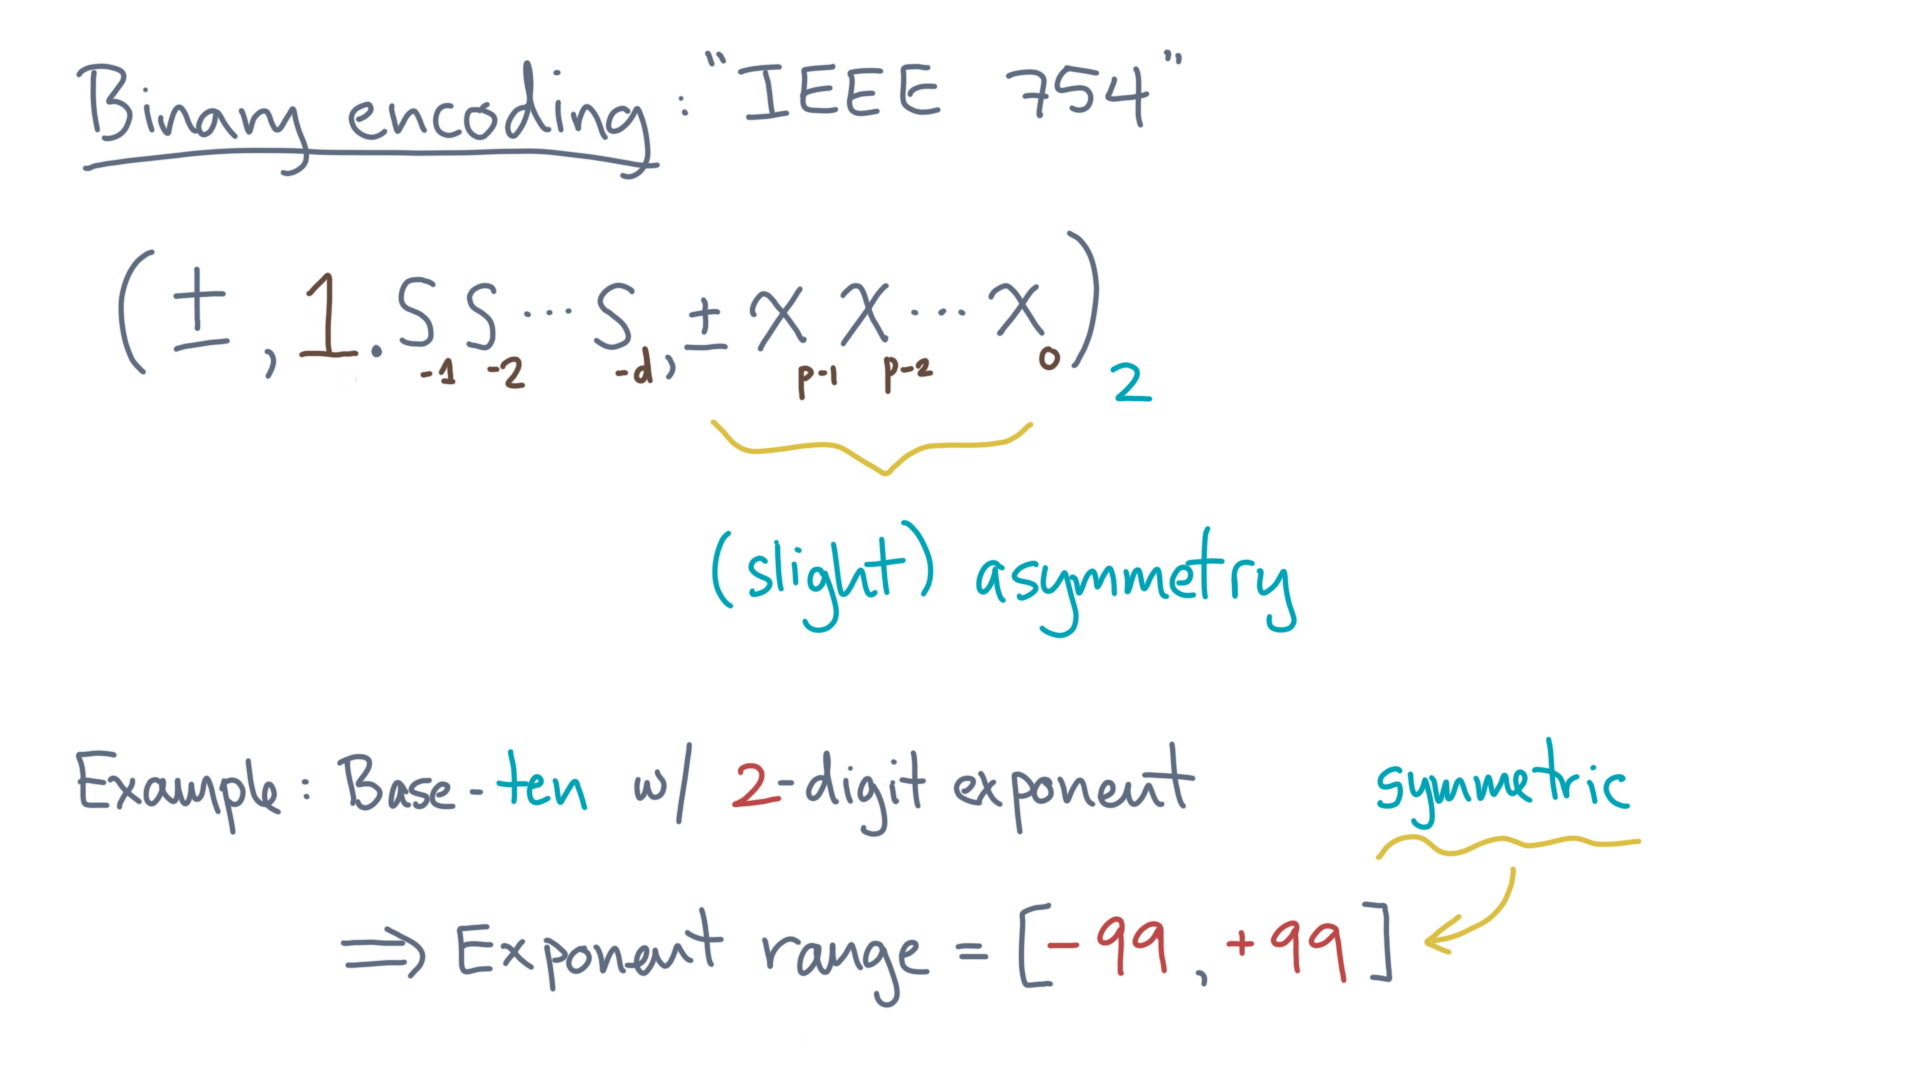 Binary encoding : "IEEE 754"
(±, 1.S₋₁S₋₂···S₋d, ±Xₚ₋₁Xₚ₋₂···X₀)₂
(slight) asymmetry
Example: Base-ten w/ 2-digit exponent symmetric
⇒ Exponent range = [-99, +99]